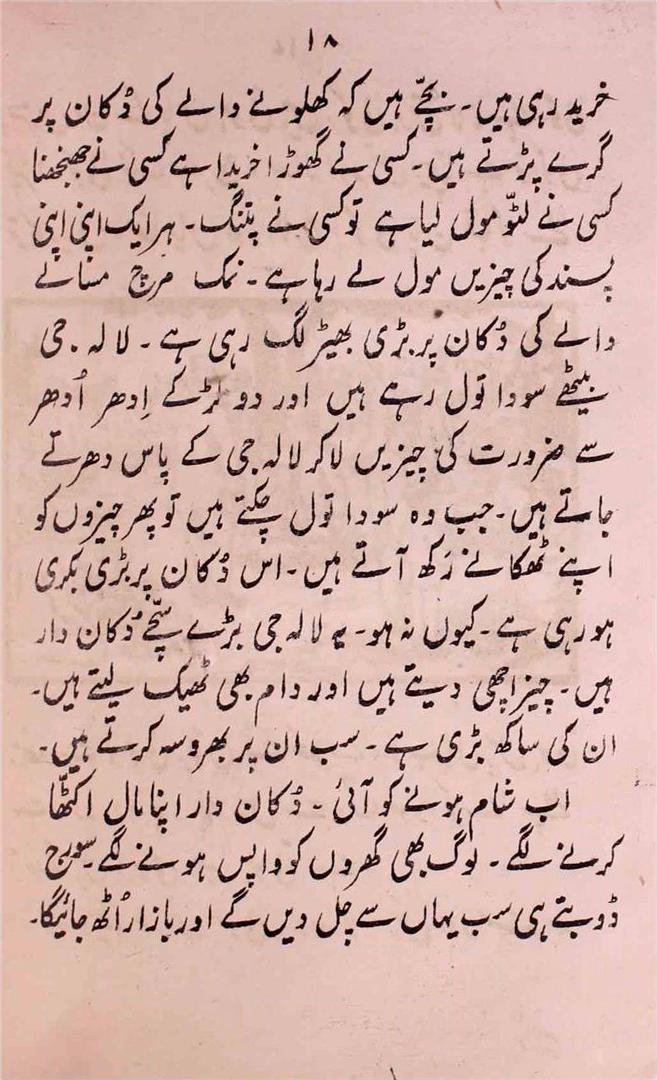 ۱۸
خرید رہی ہیں۔ بچّے ہیں کہ کھلونے والے کی دُکان پر
گرے پڑتے ہیں۔ کسی نے گھوڑا خریدا ہے کسی نے جھنجھنا
کسی نے لٹّو مول لیا ہے تو کسی نے پتنگ۔ ہر ایک اپنی اپنی
پسند کی چیزیں مول لے رہا ہے۔ نمک مرچ مسالے
والے کی دُکان پر بڑی بھیڑ لگ رہی ہے۔ لالہ جی
بیٹھے سودا تول رہے ہیں اور دو لڑکے اِدھر اُدھر
سے ضرورت کی چیزیں لا کر لالہ جی کے پاس دھرتے
جاتے ہیں۔ جب وہ سودا تول چکتے ہیں تو پھر چیزوں کو
اپنے ٹھکانے رَکھ آتے ہیں۔ اس دُکان پر بڑی بکری
ہو رہی ہے۔ کیوں نہ ہو۔ یہ لالہ جی بڑے سچّے دُکان دار
ہیں۔ چیز اچھی دیتے ہیں اور دام بھی ٹھیک لیتے ہیں۔
ان کی ساکھ بڑی ہے۔ سب ان پر بھروسہ کرتے ہیں۔
اب شام ہونے کو آئی ۔ دُکان دار اپنا مال اکٹھّا
کرنے لگے۔ لوگ بھی گھروں کو واپس ہونے لگے۔ سورج
ڈوبتے ہی سب یہاں سے چل دیں گے اور بازار اُٹھ جائیگا۔